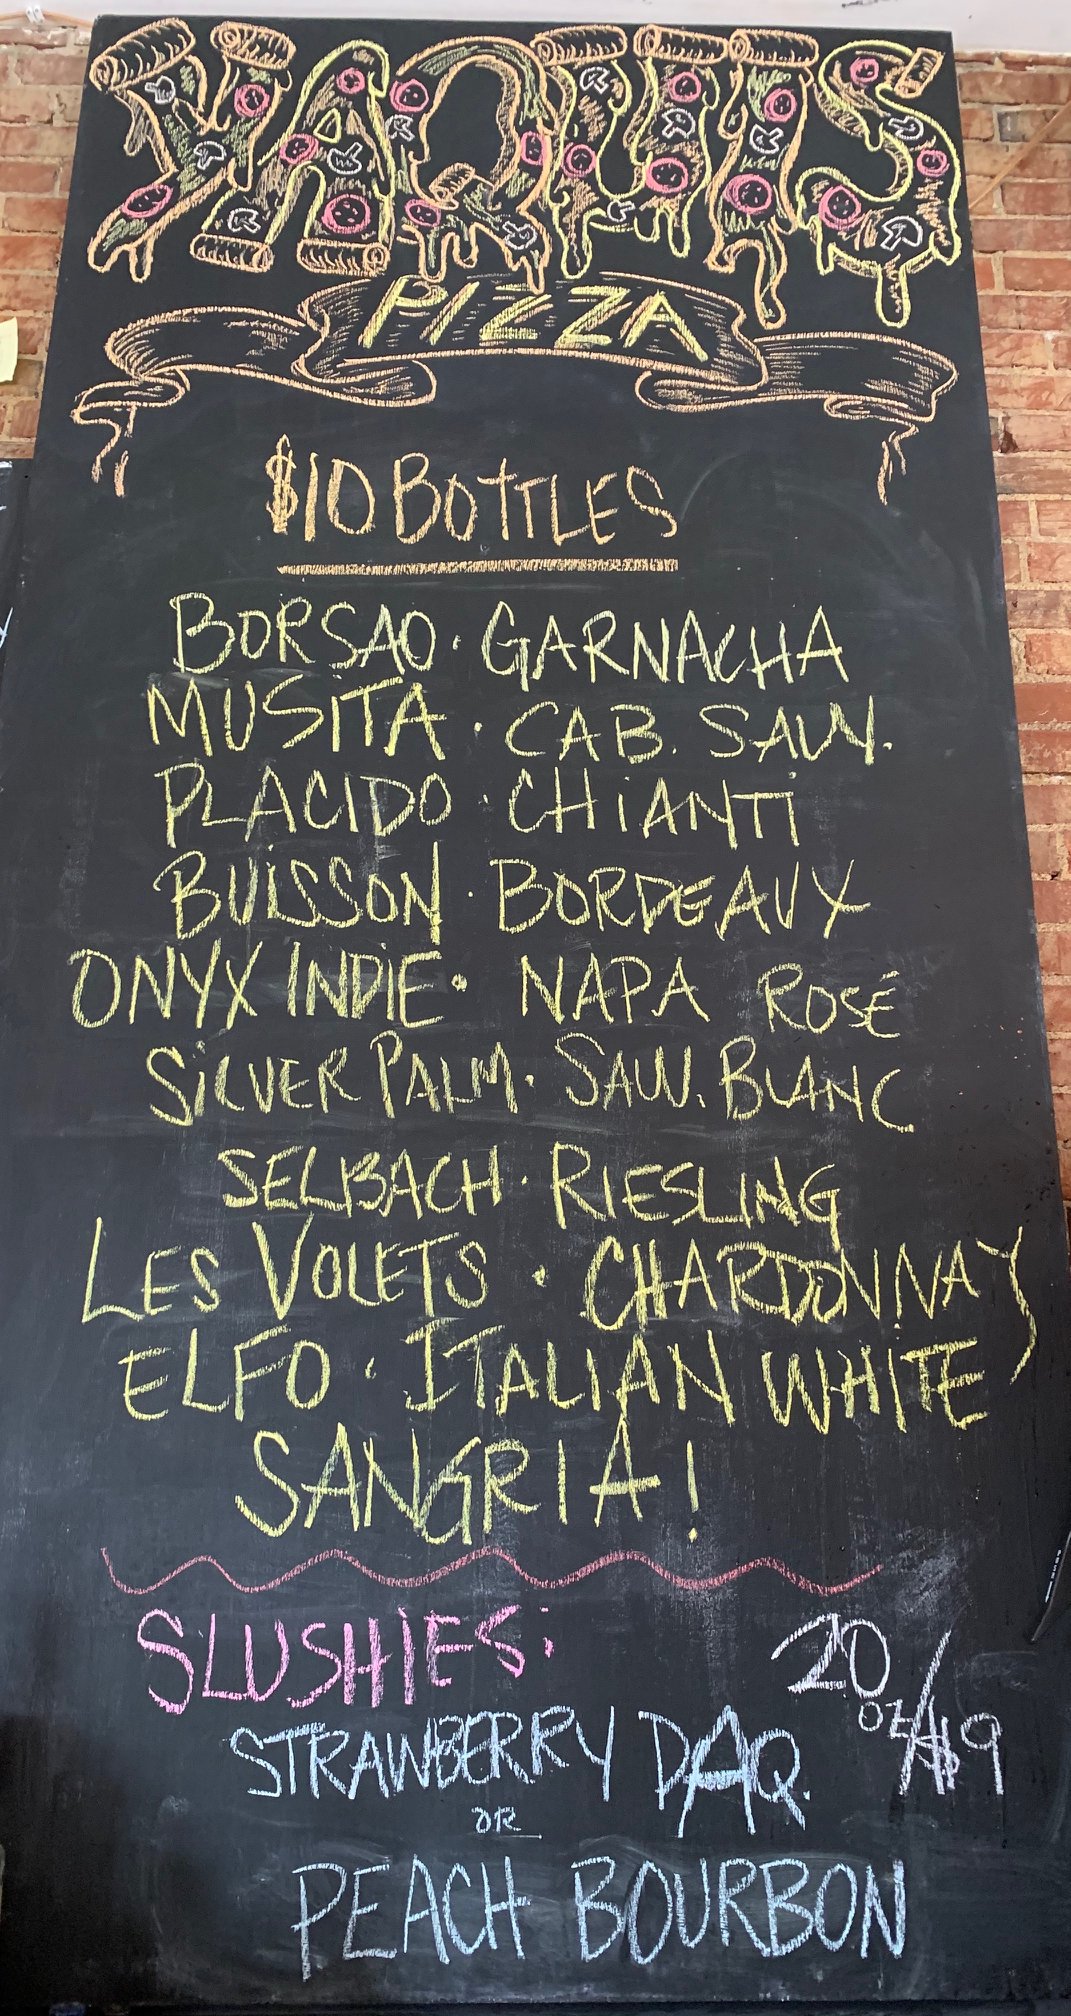 YAQUIS
PIZZA
$10 BOTTLES
BORSAO · GARNACHA
MUSITA · CAB. SAUV.
PLACIDO · CHIANTI
BUISSON · BORDEAUX
ONYX INDIE · NAPA ROSÉ
SILVER PALM · SAUV. BLANC
SELBACH · RIESLING
LES VOLETS · CHARDONNAY
ELFO · ITALIAN WHITE
SANGRIA!
SLUSHIES: 20 OZ/$9
STRAWBERRY DAQ.
OR
PEACH BOURBON